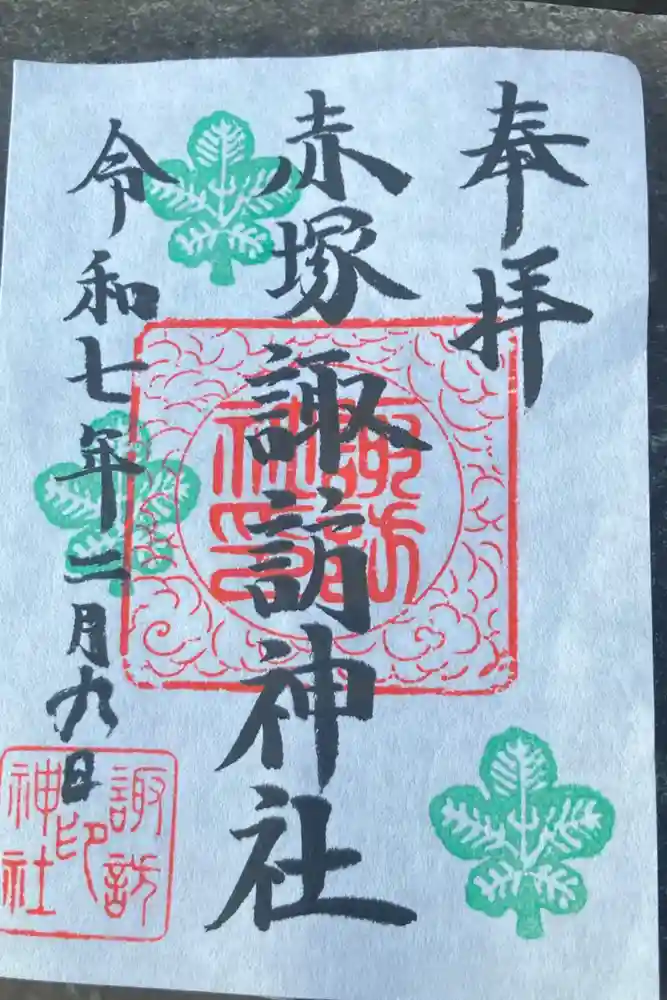 奉拝
赤塚諏訪神社
諏訪
社印
令和七年二月九日
諏訪
印
神社